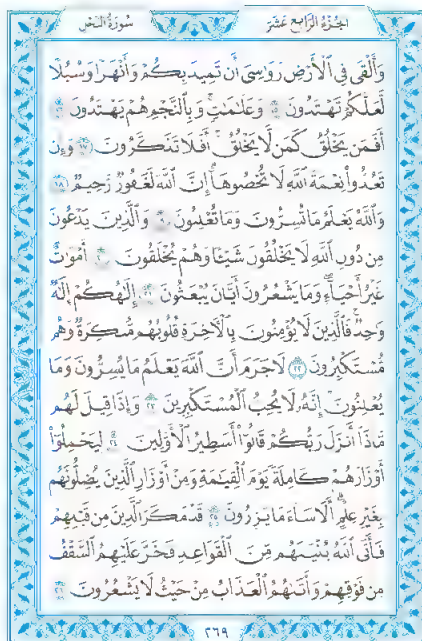 الجزء الرابع عشر
سورة النحل
وَأَلْقَىٰ فِي الْأَرْضِ رَوَاسِيَ أَن تَمِيدَ بِكُمْ وَأَنْهَٰرًا وَسُبُلًا
لَّعَلَّكُمْ تَهْتَدُونَ ١٥ وَعَلَٰمَٰتٍ ۚ وَبِالنَّجْمِ هُمْ يَهْتَدُونَ ١٦
أَفَمَن يَخْلُقُ كَمَن لَّا يَخْلُقُ ۗ أَفَلَا تَذَكَّرُونَ ١٧ وَإِن
تَعُدُّوا۟ نِعْمَةَ اللَّهِ لَا تُحْصُوهَا ۗ إِنَّ اللَّهَ لَغَفُورٌ رَّحِيمٌ ١٨
وَاللَّهُ يَعْلَمُ مَا تُسِرُّونَ وَمَا تُعْلِنُونَ ١٩ وَالَّذِينَ يَدْعُونَ
مِن دُونِ اللَّهِ لَا يَخْلُقُونَ شَيْـًٔا وَهُمْ يُخْلَقُونَ ٢٠ أَمْوَٰتٌ
غَيْرُ أَحْيَآءٍ ۖ وَمَا يَشْعُرُونَ أَيَّانَ يُبْعَثُونَ ٢١ إِلَٰهُكُمْ إِلَٰهٌ
وَٰحِدٌ ۚ فَالَّذِينَ لَا يُؤْمِنُونَ بِالْآخِرَةِ قُلُوبُهُم مُّنكِرَةٌ وَهُم
مُّسْتَكْبِرُونَ ٢٢ لَا جَرَمَ أَنَّ اللَّهَ يَعْلَمُ مَا يُسِرُّونَ وَمَا
يُعْلِنُونَ ۚ إِنَّهُۥ لَا يُحِبُّ الْمُسْتَكْبِرِينَ ٢٣ وَإِذَا قِيلَ لَهُم
مَّاذَآ أَنزَلَ رَبُّكُمْ ۙ قَالُوٓا۟ أَسَٰطِيرُ الْأَوَّلِينَ ٢٤ لِيَحْمِلُوٓا۟
أَوْزَارَهُمْ كَامِلَةً يَوْمَ الْقِيَٰمَةِ ۙ وَمِنْ أَوْزَارِ الَّذِينَ يُضِلُّونَهُم
بِغَيْرِ عِلْمٍ ۗ أَلَا سَآءَ مَا يَزِرُونَ ٢٥ قَدْ مَكَرَ الَّذِينَ مِن قَبْلِهِمْ
فَأَتَى اللَّهُ بُنْيَٰنَهُم مِّنَ الْقَوَاعِدِ فَخَرَّ عَلَيْهِمُ السَّقْفُ
مِن فَوْقِهِمْ وَأَتَىٰهُمُ الْعَذَابُ مِنْ حَيْثُ لَا يَشْعُرُونَ ٢٦
٢٦٩